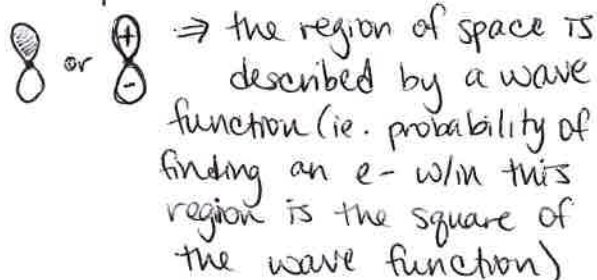 or + - ⇒ the region of space is
described by a wave
function (ie. probability of
finding an e- w/in this
region is the square of
the wave function)